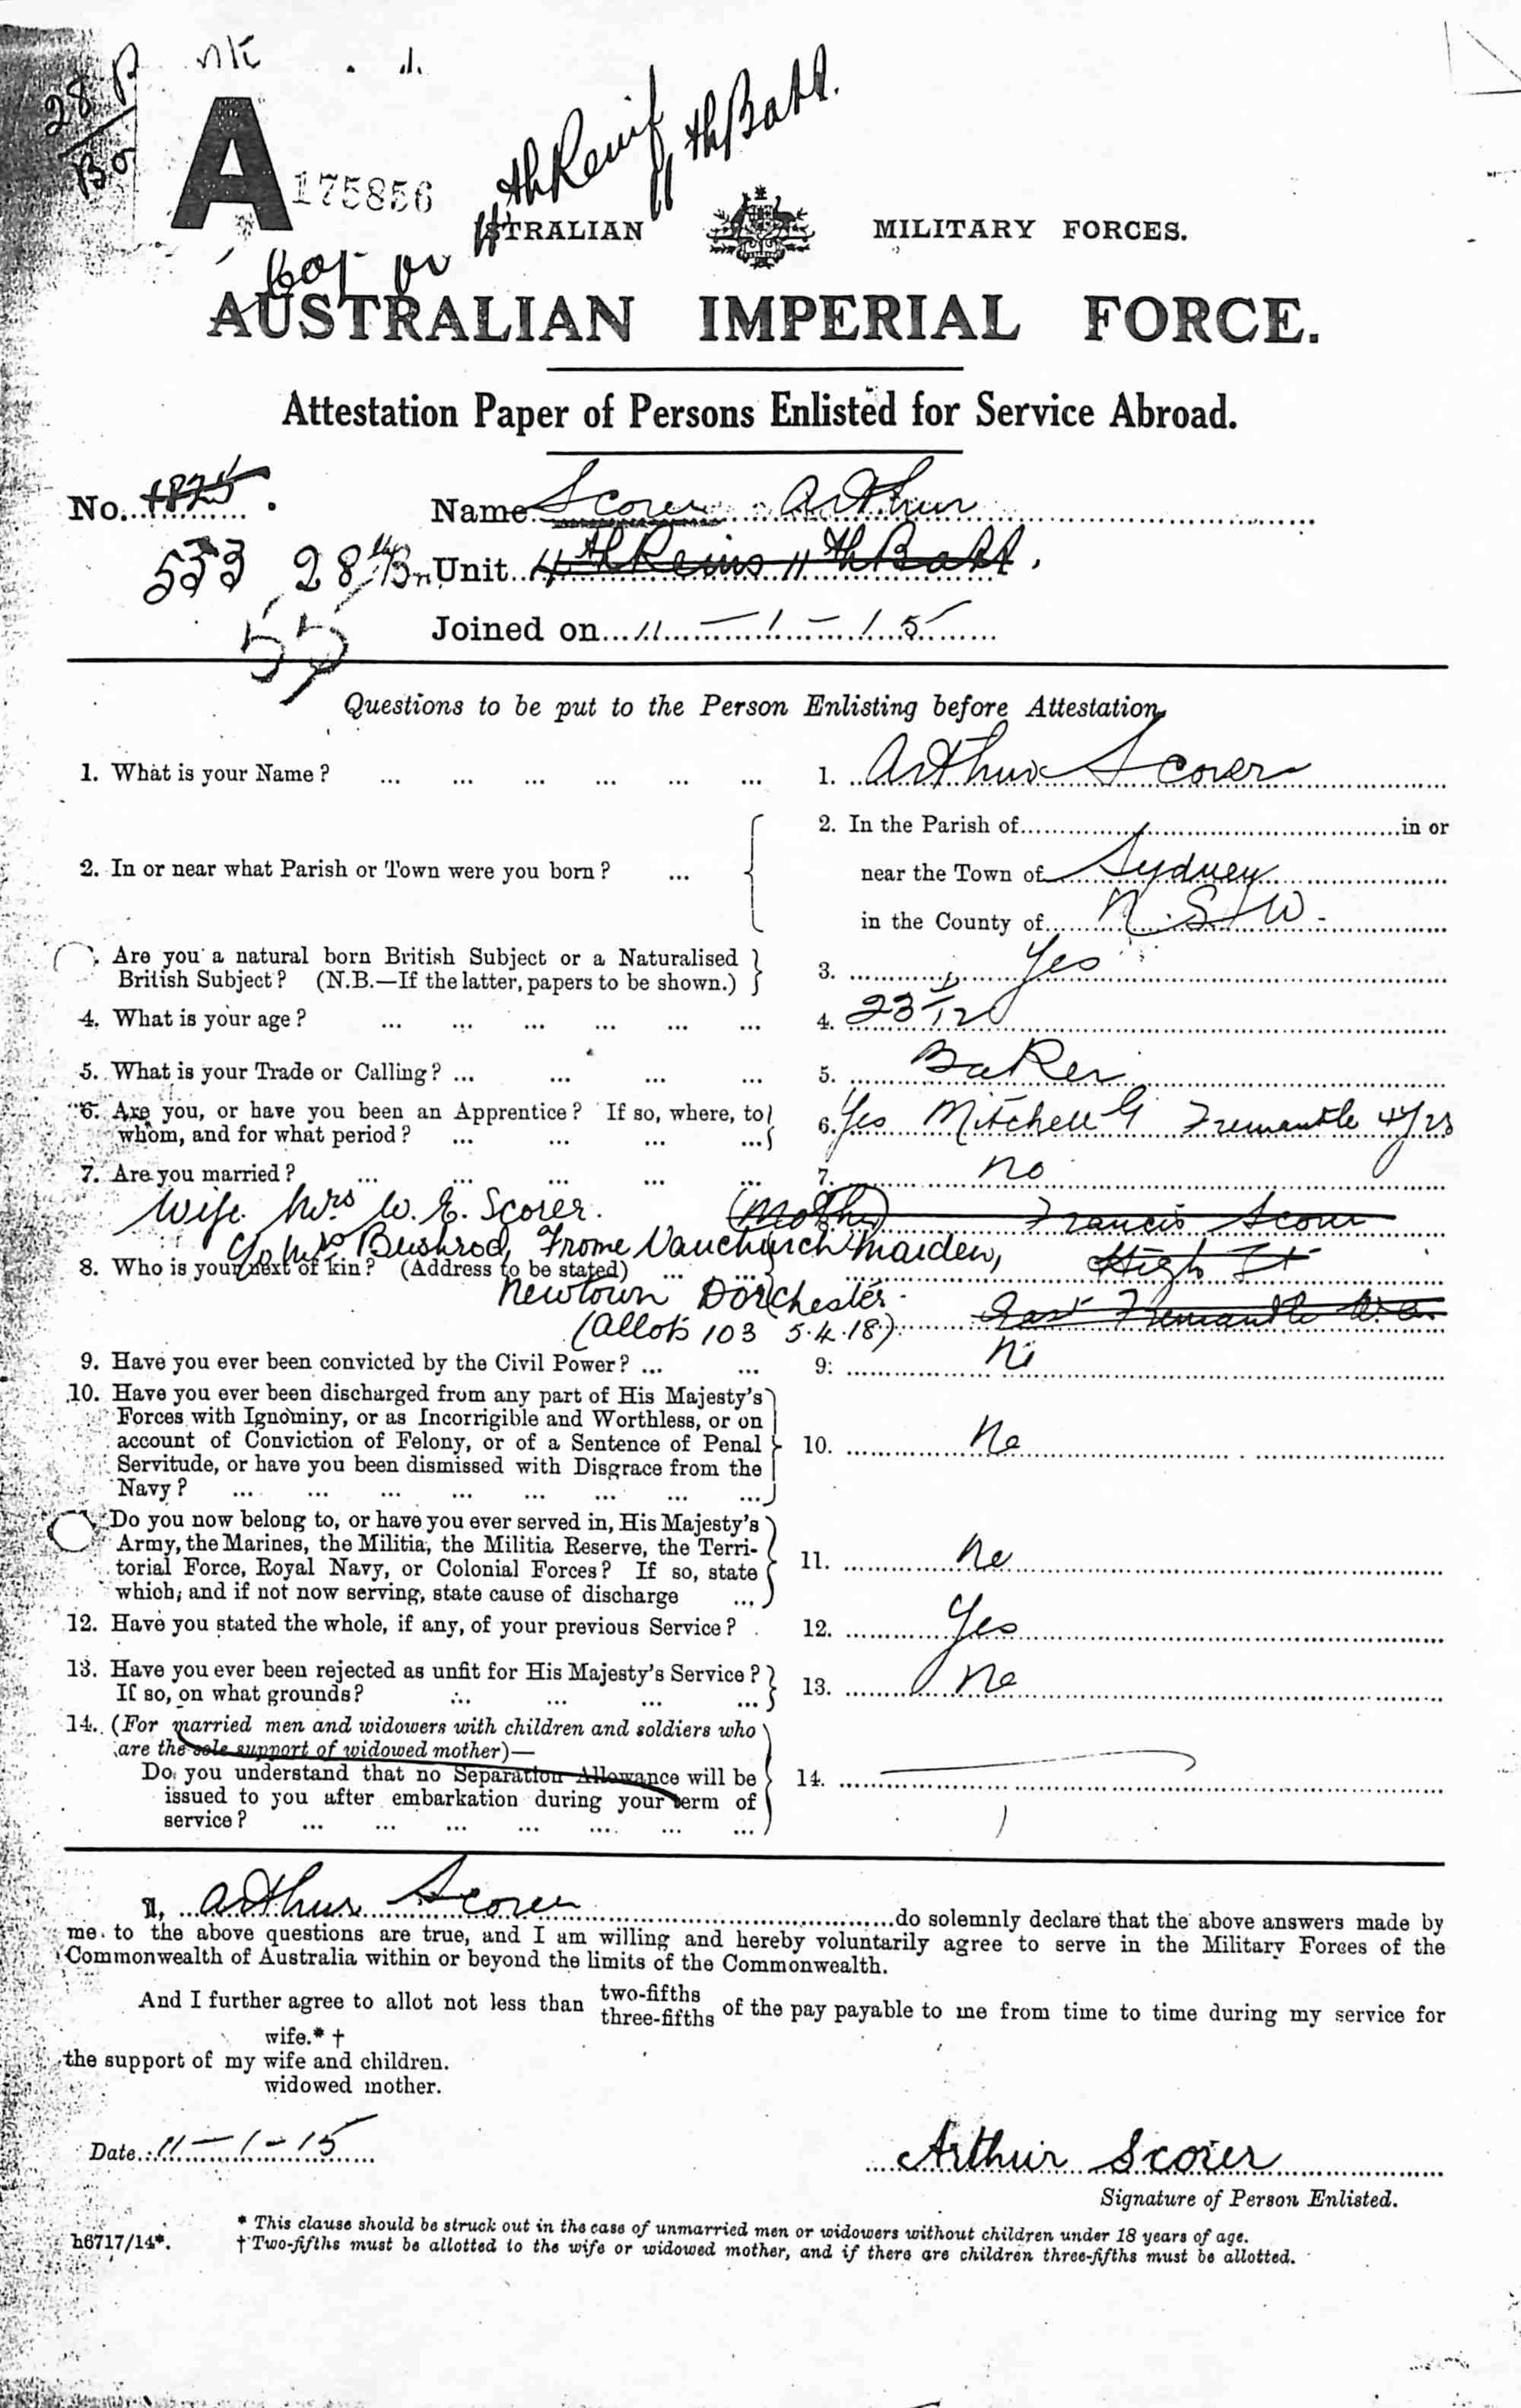 28 B
Bo
A 175856
4th Reinf 11th Batt.
STRALIAN MILITARY FORCES.
AUSTRALIAN IMPERIAL FORCE.
Attestation Paper of Persons Enlisted for Service Abroad.
No. 1825. Name Scorer Arthur
533 28th Bn Unit 4th Reins 11th Batt.
55
Joined on 11 - 1 - 15
Questions to be put to the Person Enlisting before Attestation
1. What is your Name? ... ... ... ... ... ... 1. Arthur Scorer
2. In the Parish of in or
2. In or near what Parish or Town were you born? ... near the Town of Sydney
in the County of N.S.W.
Are you a natural born British Subject or a Naturalised
British Subject? (N.B.—If the latter, papers to be shown.) 3. Yes
4. What is your age? ... ... ... ... ... ... 4. 23 1/12
5. What is your Trade or Calling? ... ... ... ... 5. Baker
6. Are you, or have you been an Apprentice? If so, where, to
whom, and for what period? ... ... ... ... 6. Yes Mitchell G Fremantle 4 yrs
7. Are you married? ... ... ... ... ... 7. no
Wife Mrs W. E. Scorer. (Mother) Francis Scorer
c/o Mrs Bushrod, Frome Vauchurch Maiden, High St
8. Who is your next of kin? (Address to be stated) ... ...
Newtown Dorchester. East Fremantle W.A.
(Allots 103 5.4.18)
9. Have you ever been convicted by the Civil Power? ... ... 9: No
10. Have you ever been discharged from any part of His Majesty's
Forces with Ignominy, or as Incorrigible and Worthless, or on
account of Conviction of Felony, or of a Sentence of Penal 10. No
Servitude, or have you been dismissed with Disgrace from the
Navy? ... ... ... ... ... ... ... ...
Do you now belong to, or have you ever served in, His Majesty's
Army, the Marines, the Militia, the Militia Reserve, the Terri-
torial Force, Royal Navy, or Colonial Forces? If so, state 11. No
which, and if not now serving, state cause of discharge ...
12. Have you stated the whole, if any, of your previous Service? 12. Yes
13. Have you ever been rejected as unfit for His Majesty's Service?
If so, on what grounds? ... ... ... ... 13. No
14. (For married men and widowers with children and soldiers who
are the sole support of widowed mother)—
Do you understand that no Separation Allowance will be 14.
issued to you after embarkation during your term of
service? ... ... ... ... ... ... ...
I, Arthur Scorer do solemnly declare that the above answers made by
me to the above questions are true, and I am willing and hereby voluntarily agree to serve in the Military Forces of the
Commonwealth of Australia within or beyond the limits of the Commonwealth.
And I further agree to allot not less than two-fifths
three-fifths of the pay payable to me from time to time during my service for
wife.* †
the support of my wife and children.
widowed mother.
Date 11 - 1 - 15 Arthur Scorer
Signature of Person Enlisted.
* This clause should be struck out in the case of unmarried men or widowers without children under 18 years of age.
h6717/14*. † Two-fifths must be allotted to the wife or widowed mother, and if there are children three-fifths must be allotted.